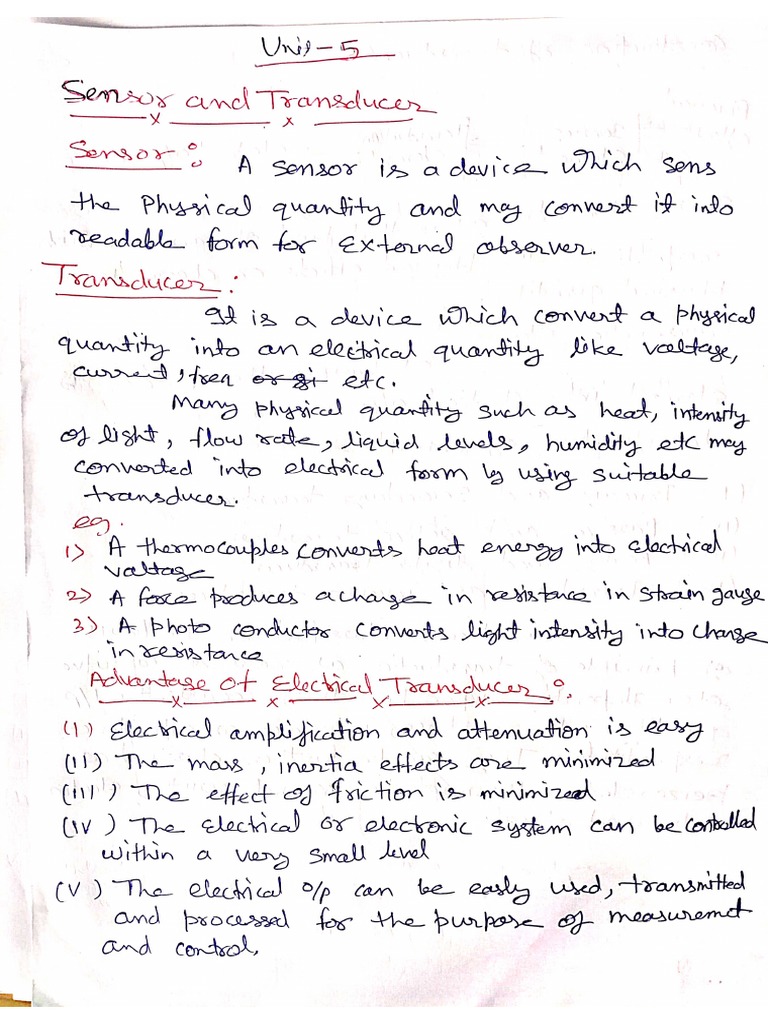 Unit-5
Sensor and Transducer
Sensor: A sensor is a device which sens
the Physical quantity and may convert it into
readable form for External observer.
Transducer:
It is a device which convert a physical
quantity into an electrical quantity like voaltage,
current, freq or gi etc.
Many physical quantity such as heat, intensity
of light, flow rate, liquid levels, humidity etc may
converted into electrical form by using suitable
transducer.
eg.
1) A thermocouples converts heat energy into Electrical
voaltage
2) A force produces a change in resistance in strain gauge
3) A Photo conductor converts light intensity into Change
in resistance
Advantage of Electrical Transducer:
(I) Electrical amplification and attenuation is easy
(II) The mass, inertia effects are minimized
(III) The effect of friction is minimized
(IV) The Electrical or electronic system can be controlled
within a very small level
(V) The electrical o/p can be easly used, transmitted
and processed for the purpose of measuremet
and control.